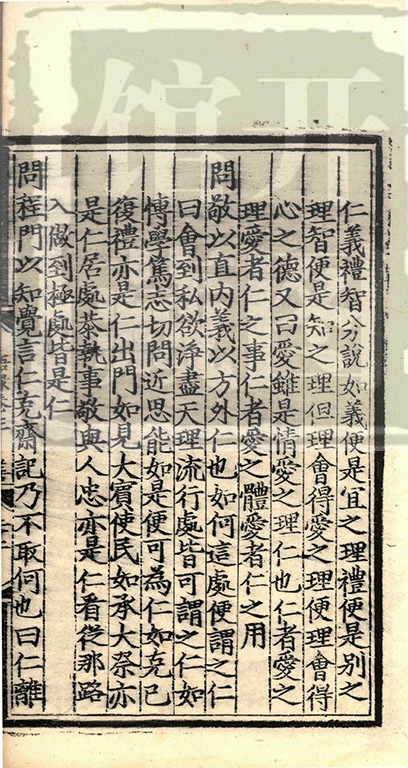 仁義禮智分說如義便是宜之理禮便是別之
理智便是知之理但理會得愛之理便理會得
心之德又曰愛雖是情愛之理仁也仁者愛之
理愛者仁之事仁者愛之體愛者仁之用
問敬以直内義以方外仁也如何這處便謂之仁
曰會到私欲淨盡天理流行處皆可謂之仁如
博學篤志切問近思能如是便可為仁如克己
復禮亦是仁出門如見大賓使民如承大祭亦
是仁居處恭執事敬與人忠亦是仁看從那路
入做到極處皆是仁
問程門以知覺言仁克齋記乃不取何也曰仁離